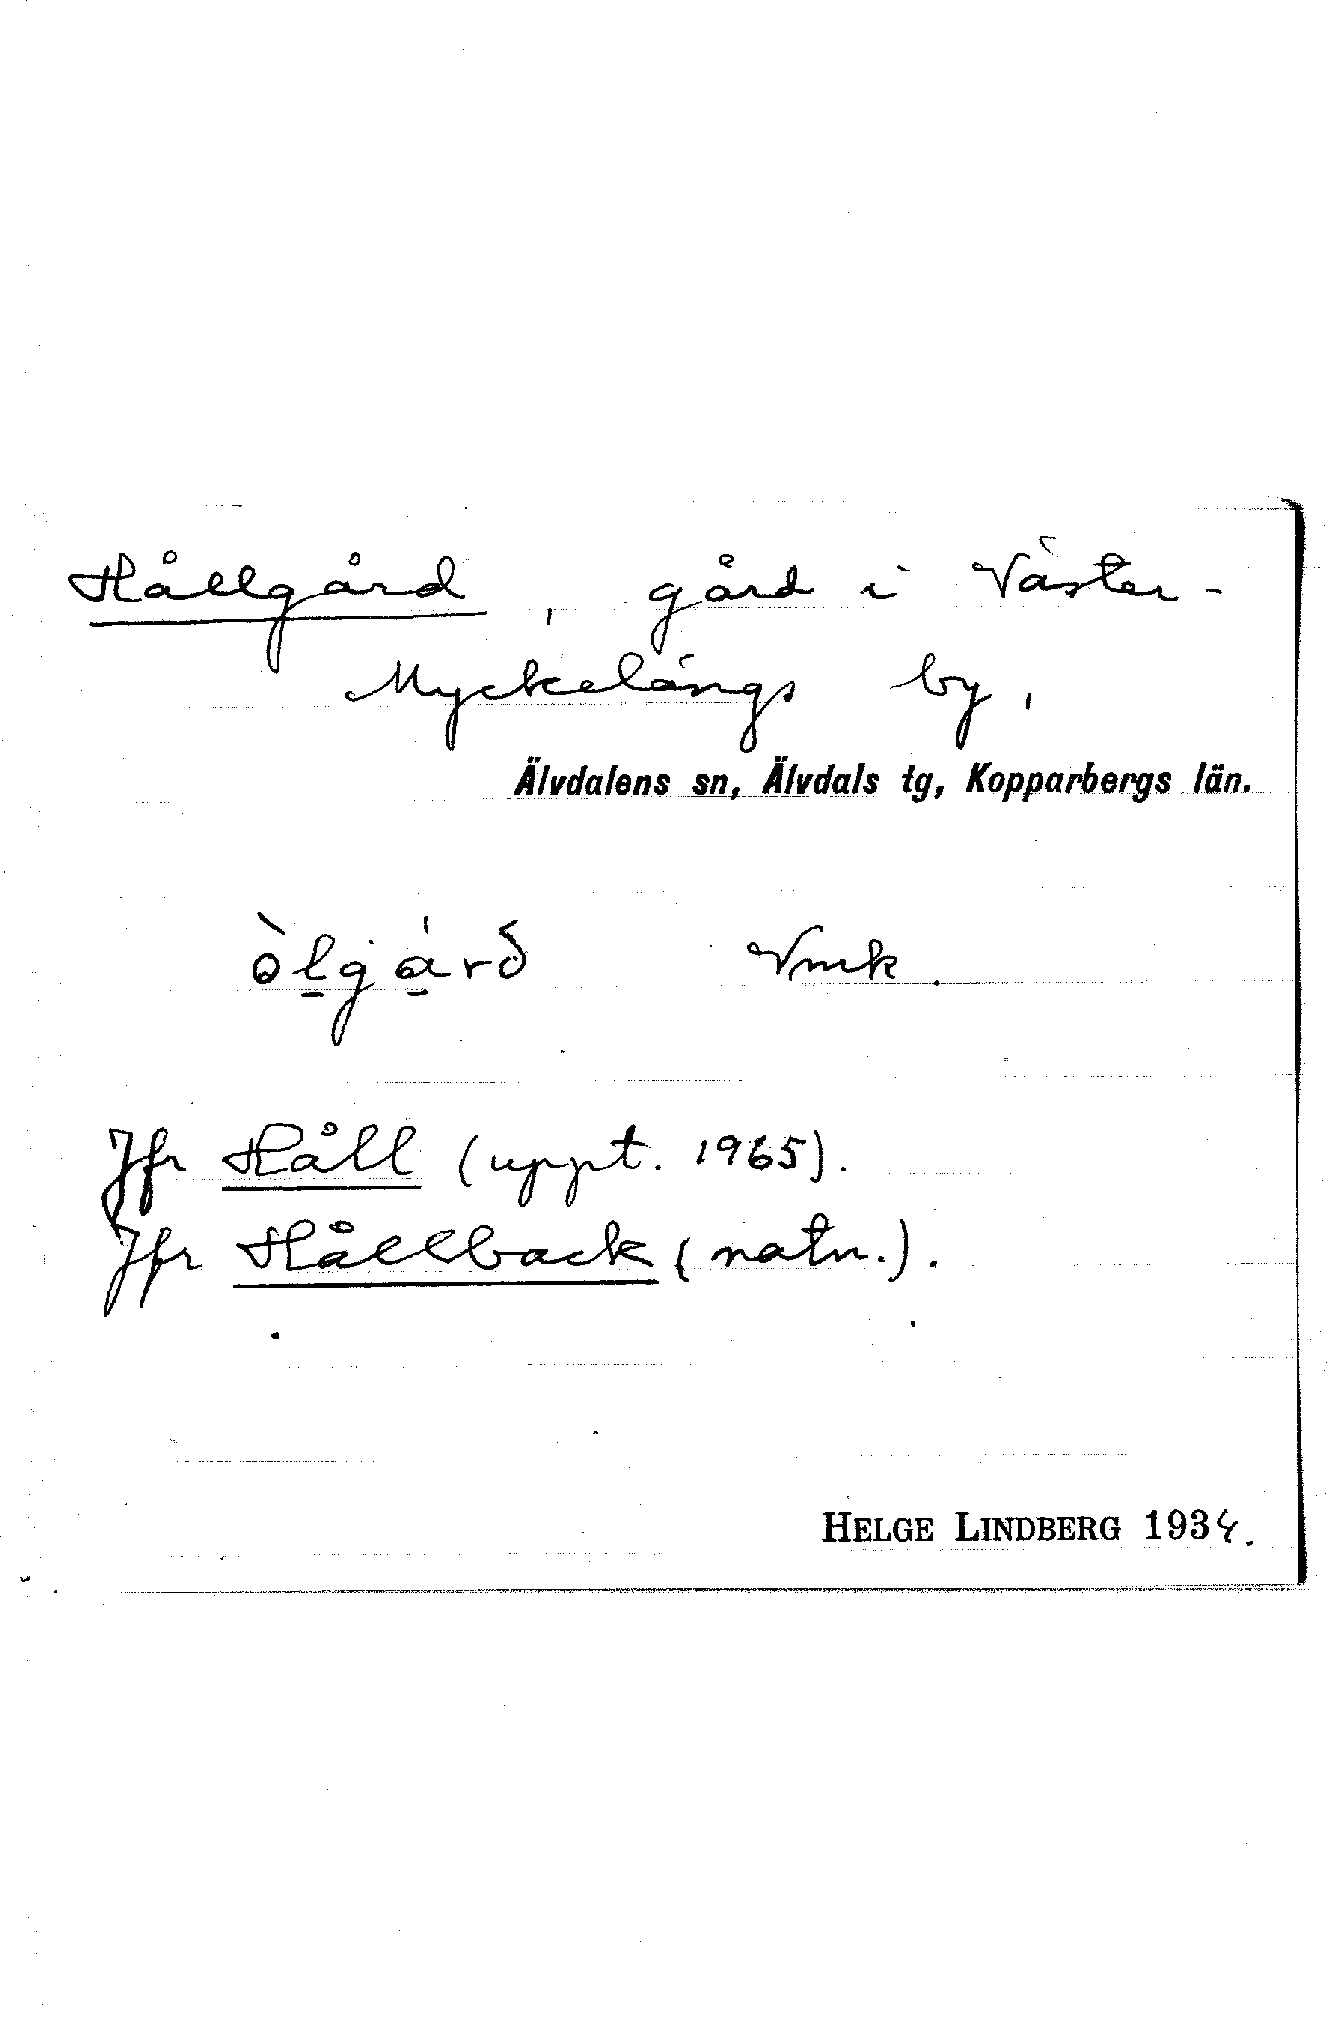 Hållgård, gård i Väster-
Myckelängs by,
Älvdalens sn, Älvdals tg, Kopparbergs län.
òl̠gá̠rð Vmk.
Jfr Håll (uppt. 1965).
Jfr Hållback (natn.).
HELGE LINDBERG 1934.